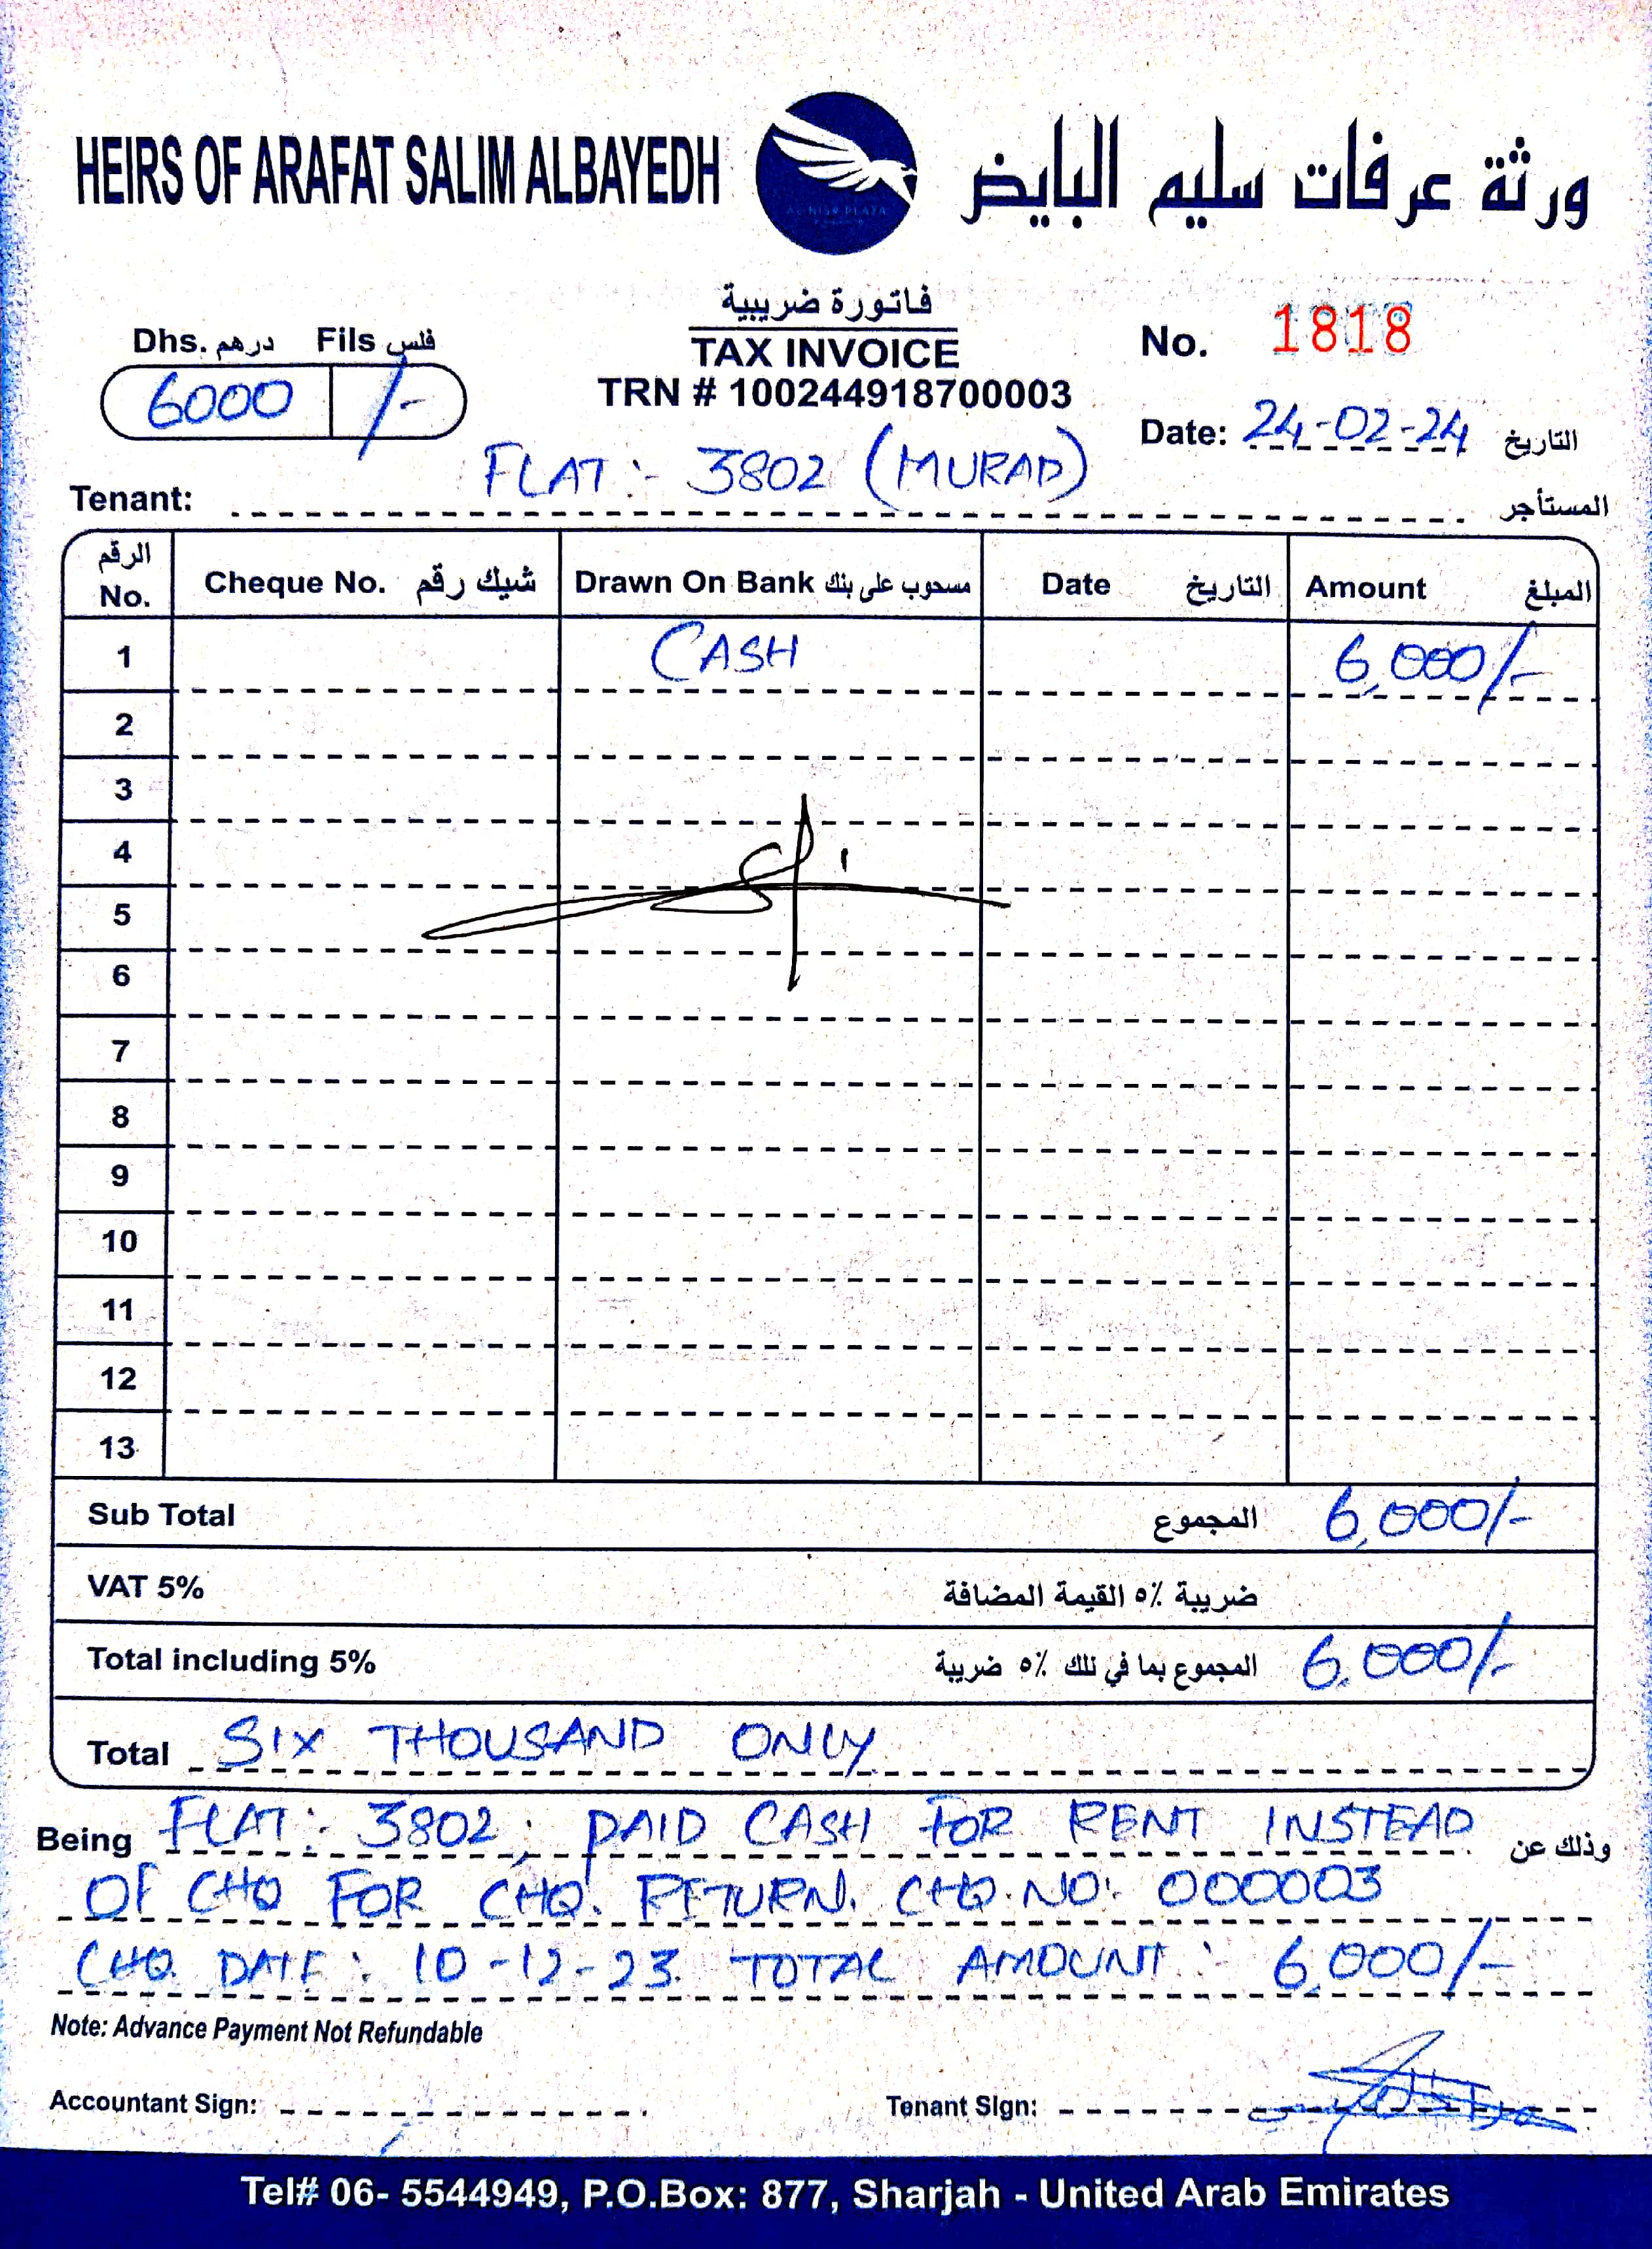 HEIRS OF ARAFAT SALIM ALBAYEDH
ورثة عرفات سليم البايض
AL NISR PLAZA
فاتورة ضريبية
TAX INVOICE
TRN # 100244918700003
Dhs. درهم Fils فلس
6000 /-
No. 1818
Date: 24-02-24 التاريخ
Tenant: FLAT :- 3802 (MURAD) المستأجر
الرقم No. Cheque No. شيك رقم Drawn On Bank مسحوب على بنك Date التاريخ Amount المبلغ
1 CASH 6,000/-
2
3
4
5
6
7
8
9
10
11
12
13
Sub Total المجموع 6,000/-
VAT 5% ضريبة ٪٥ القيمة المضافة
Total including 5% المجموع بما في تلك ٪٥ ضريبة 6,000/-
Total SIX THOUSAND ONLY
Being FLAT :- 3802, PAID CASH FOR RENT INSTEAD وذلك عن
OF CHQ FOR CHQ. RETURN. CHQ.NO:- 000003
CHQ. DATE :- 10-12-23. TOTAL AMOUNT :- 6,000/-
Note: Advance Payment Not Refundable
Accountant Sign:
Tenant Sign:
Tel# 06- 5544949, P.O.Box: 877, Sharjah - United Arab Emirates